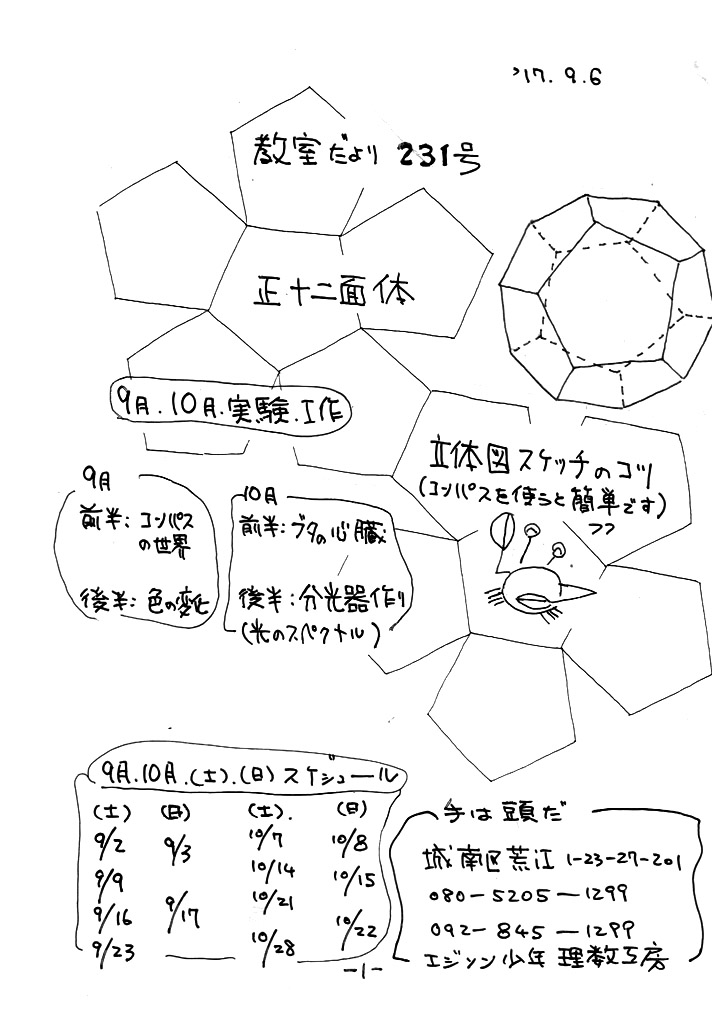 '17.9.6
教室だより 231号
正十二面体
9月.10月.実験.工作
立体図スケッチのコツ
(コンパスを使うと簡単です)
9月
前半:コンパス
の世界
後半:色の変化
10月
前半:ブタの心臓
後半:分光器作り
(光のスペクトル)
9月.10月.(土).(日)スケジュール
(土) (日) (土). (日)
9/2 9/3 10/7 10/8
9/9 10/14 10/15
9/16 9/17 10/21 10/22
9/23 10/28
手は頭だ
城南区荒江 1-23-27-201
080-5205-1299
092-845-1299
エジソン少年 理数工房
-1-